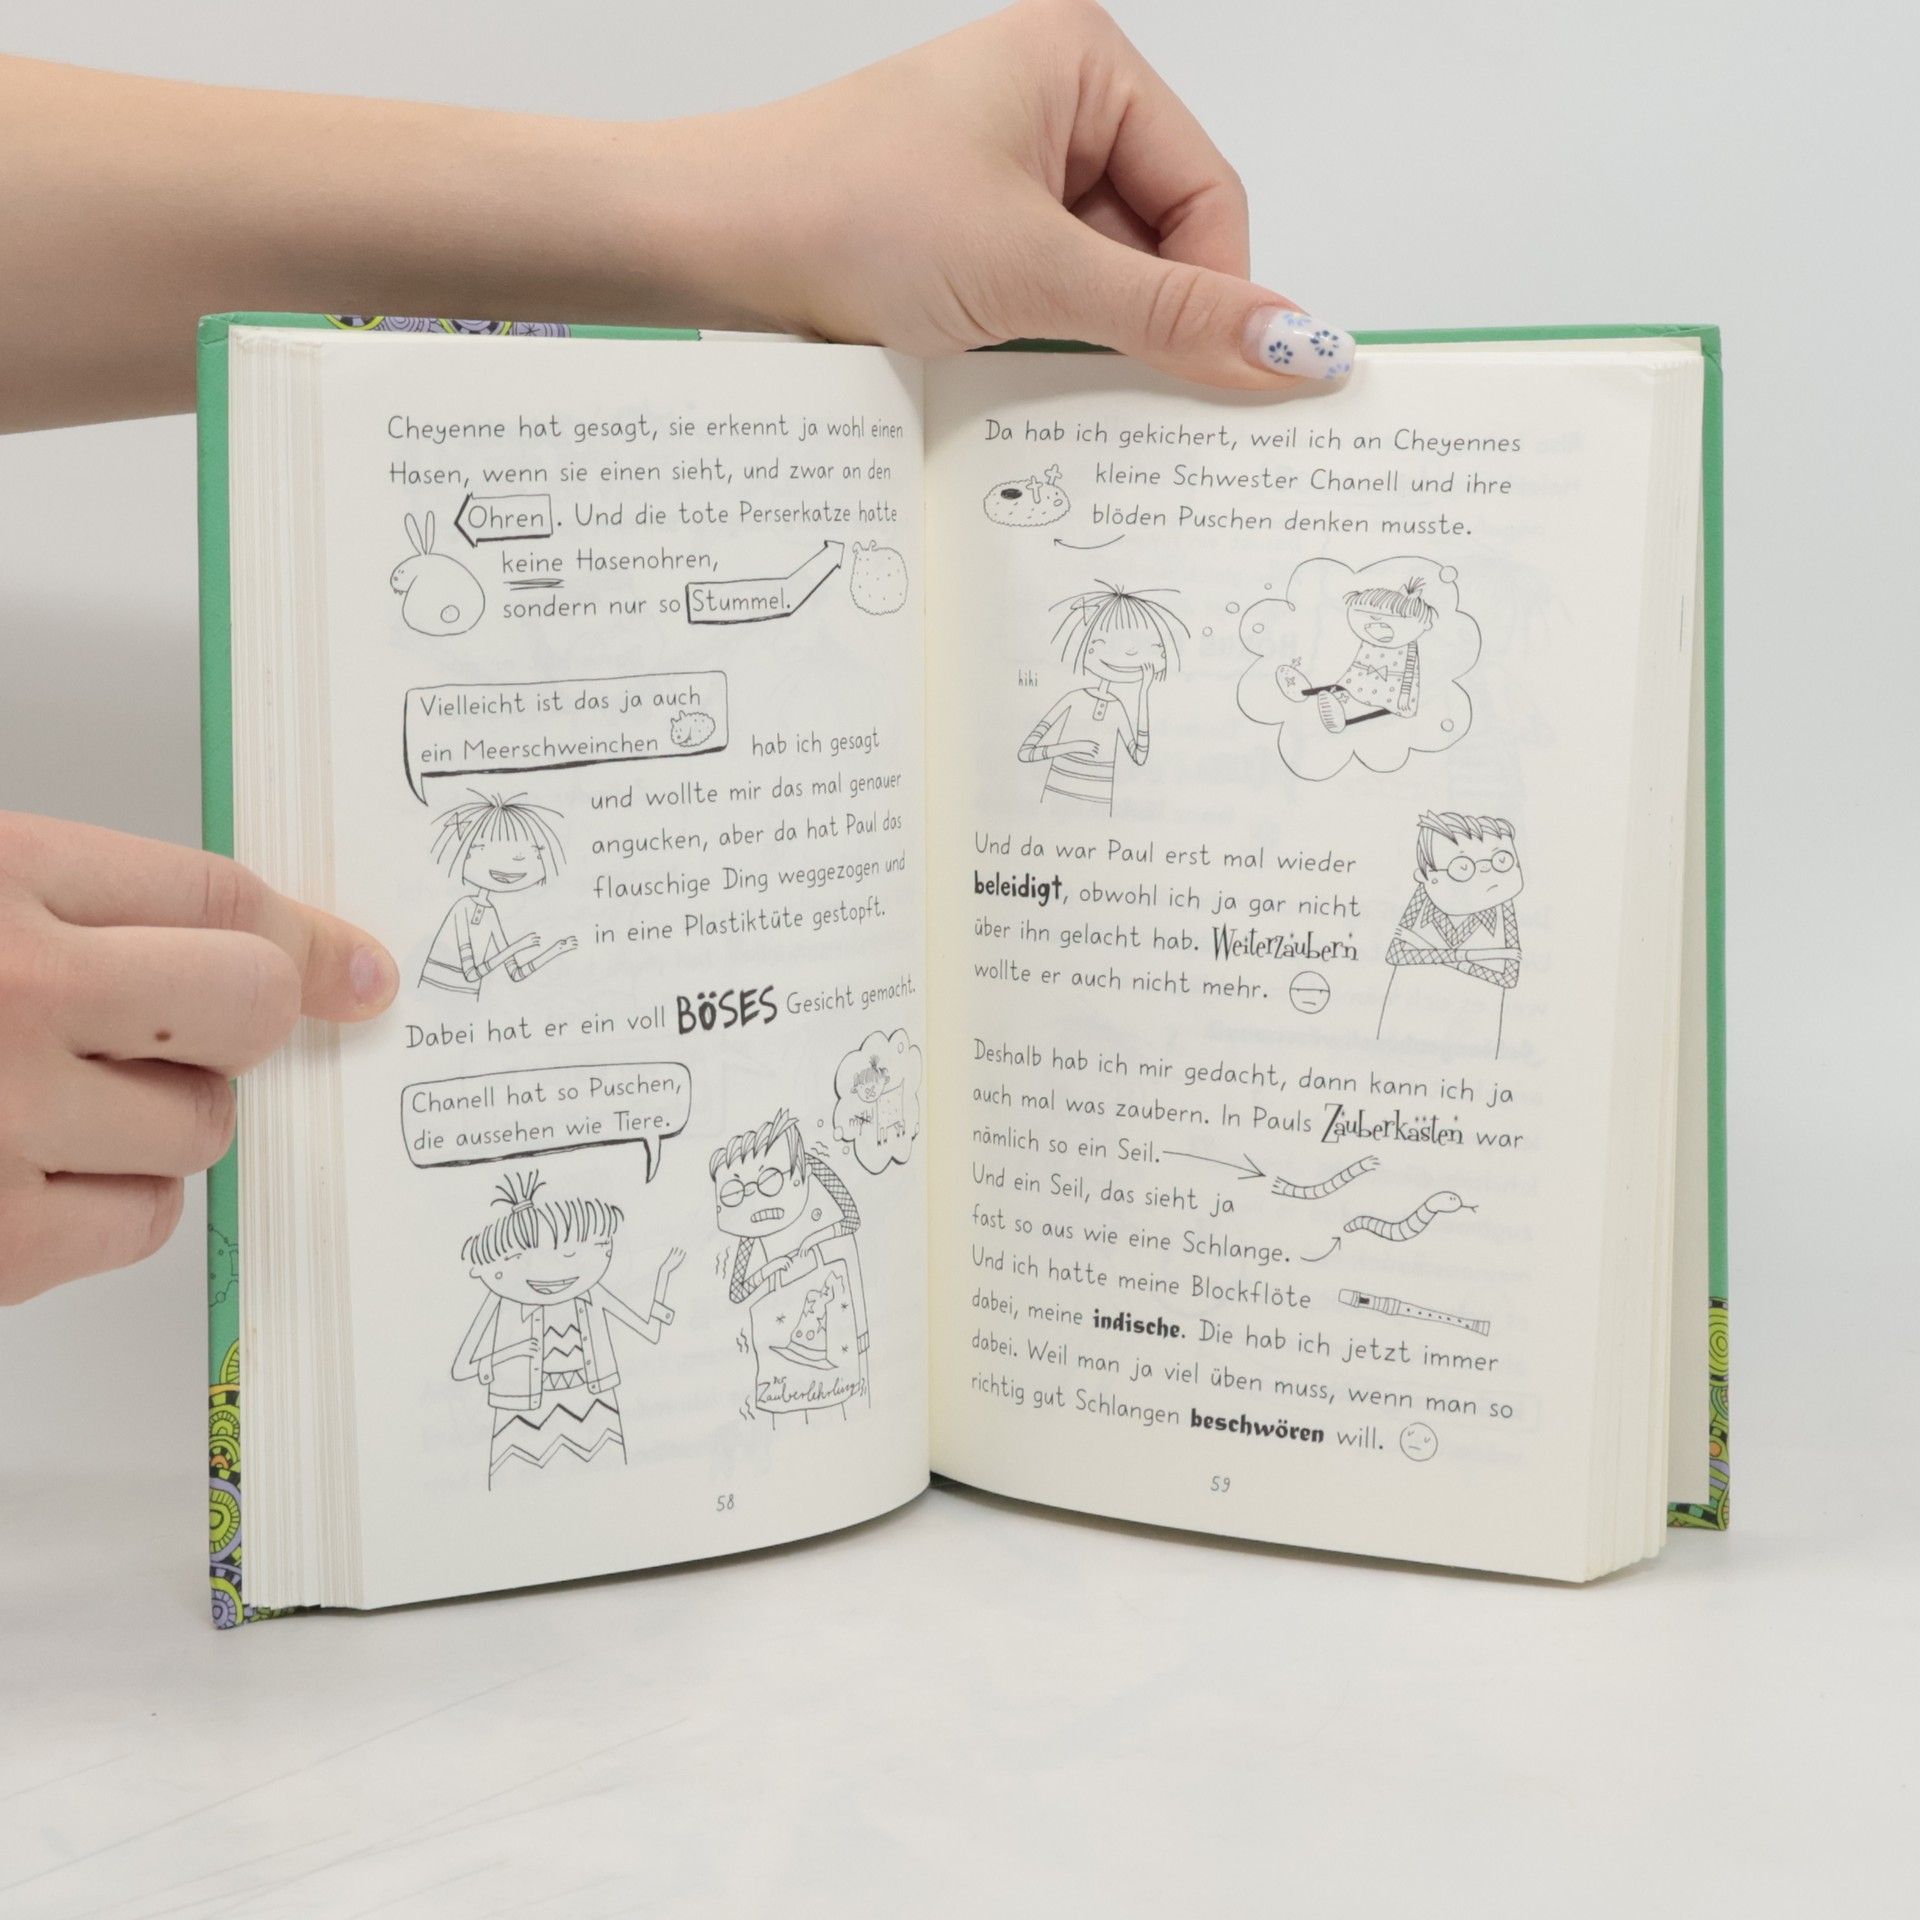 Cheyenne hat gesagt, sie erkennt ja wohl einen
Hasen, wenn sie einen sieht, und zwar an den
Ohren. Und die tote Perserkatze hatte
keine Hasenohren,
sondern nur so Stummel.
Vielleicht ist das ja auch
ein Meerschweinchen
hab ich gesagt
und wollte mir das mal genauer
angucken, aber da hat Paul das
flauschige Ding weggezogen und
in eine Plastiktüte gestopft.
Dabei hat er ein voll BÖSES Gesicht gemacht.
Chanell hat so Puschen,
die aussehen wie Tiere.
Der
Zauberlehrling
58
Da hab ich gekichert, weil ich an Cheyennes
kleine Schwester Chanell und ihre
blöden Puschen denken musste.
hihi
Und da war Paul erst mal wieder
beleidigt, obwohl ich ja gar nicht
über ihn gelacht hab. Weiterzaubern
wollte er auch nicht mehr.
Deshalb hab ich mir gedacht, dann kann ich ja
auch mal was zaubern. In Pauls Zauberkasten war
nämlich so ein Seil.
Und ein Seil, das sieht ja
fast so aus wie eine Schlange.
Und ich hatte meine Blockflöte
dabei, meine indische. Die hab ich jetzt immer
dabei. Weil man ja viel üben muss, wenn man so
richtig gut Schlangen beschwören will.
59